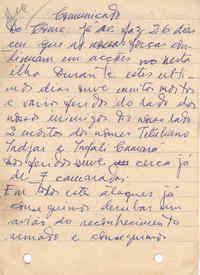 Comunicado
Do Como, já se faz 26 dias
em que as nossas forças con-
tinuam em acções nesta
ilha durante estes ulti-
mos dias uve muitos mortos
e vario feridos do lado dos
nosso inimigos do nosso lado
2 mortos de nomes
e Camará
dos feridos uve cerca já
de 7 camaradas.
Em todos este ataques já
conseguimos derubar um
avião do reconhecimento
rumado e conseguimos